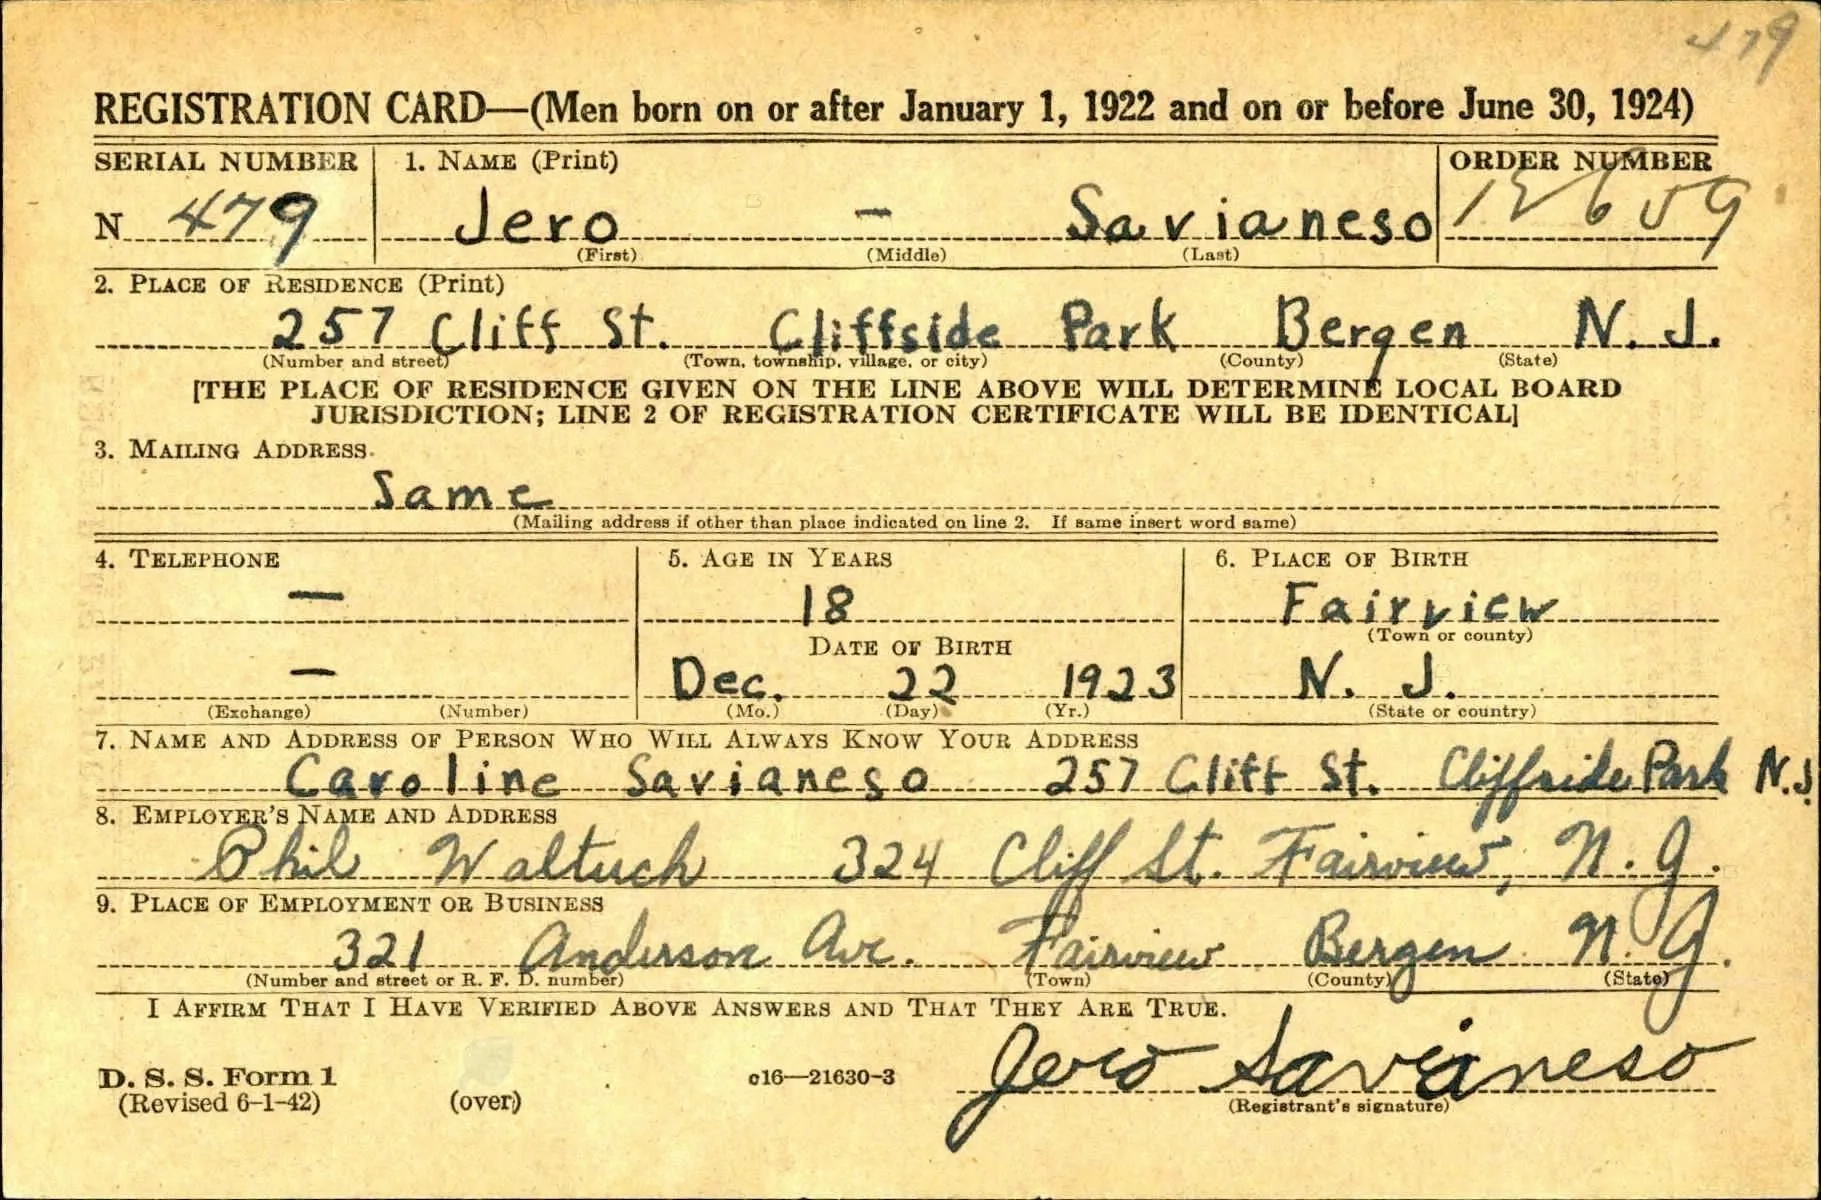 479
REGISTRATION CARD—(Men born on or after January 1, 1922 and on or before June 30, 1924)
SERIAL NUMBER 1. NAME (Print) ORDER NUMBER
N 479 Jero – Savianeso 12659
(First) (Middle) (Last)
2. PLACE OF RESIDENCE (Print)
257 Cliff St. Cliffside Park Bergen N. J.
(Number and street) (Town, township, village, or city) (County) (State)
[THE PLACE OF RESIDENCE GIVEN ON THE LINE ABOVE WILL DETERMINE LOCAL BOARD
JURISDICTION; LINE 2 OF REGISTRATION CERTIFICATE WILL BE IDENTICAL]
3. MAILING ADDRESS
Same
(Mailing address if other than place indicated on line 2. If same insert word same)
4. TELEPHONE 5. AGE IN YEARS 6. PLACE OF BIRTH
– 18 Fairview
(Town or county)
DATE OF BIRTH
– Dec. 22 1923 N. J.
(Exchange) (Number) (Mo.) (Day) (Yr.) (State or country)
7. NAME AND ADDRESS OF PERSON WHO WILL ALWAYS KNOW YOUR ADDRESS
Caroline Savianeso 257 Cliff St. Cliffside Park N.J.
8. EMPLOYER'S NAME AND ADDRESS
Phil Waltuch 324 Cliff St. Fairview, N. J.
9. PLACE OF EMPLOYMENT OR BUSINESS
321 Anderson Ave. Fairview Bergen N. J.
(Number and street or R. F. D. number) (Town) (County) (State)
I AFFIRM THAT I HAVE VERIFIED ABOVE ANSWERS AND THAT THEY ARE TRUE.
Jero Savianeso
D. S. S. Form 1 c16—21630-3
(Revised 6-1-42) (over) (Registrant's signature)